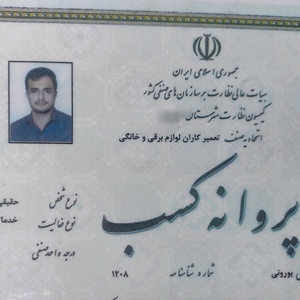 جمهوری اسلامی ایران
هیات عالی نظارت بر سازمان های صنفی کشور
کمیسیون نظارت شهرستان
اتحادیه صنف تعمیر کاران لوازم برقی و خانگی
پروانه کسب
نوع شخص حقیقی
نوع فعالیت خدما
درجه واحد صنفی
شماره شناسنامه ۱۲۰۸